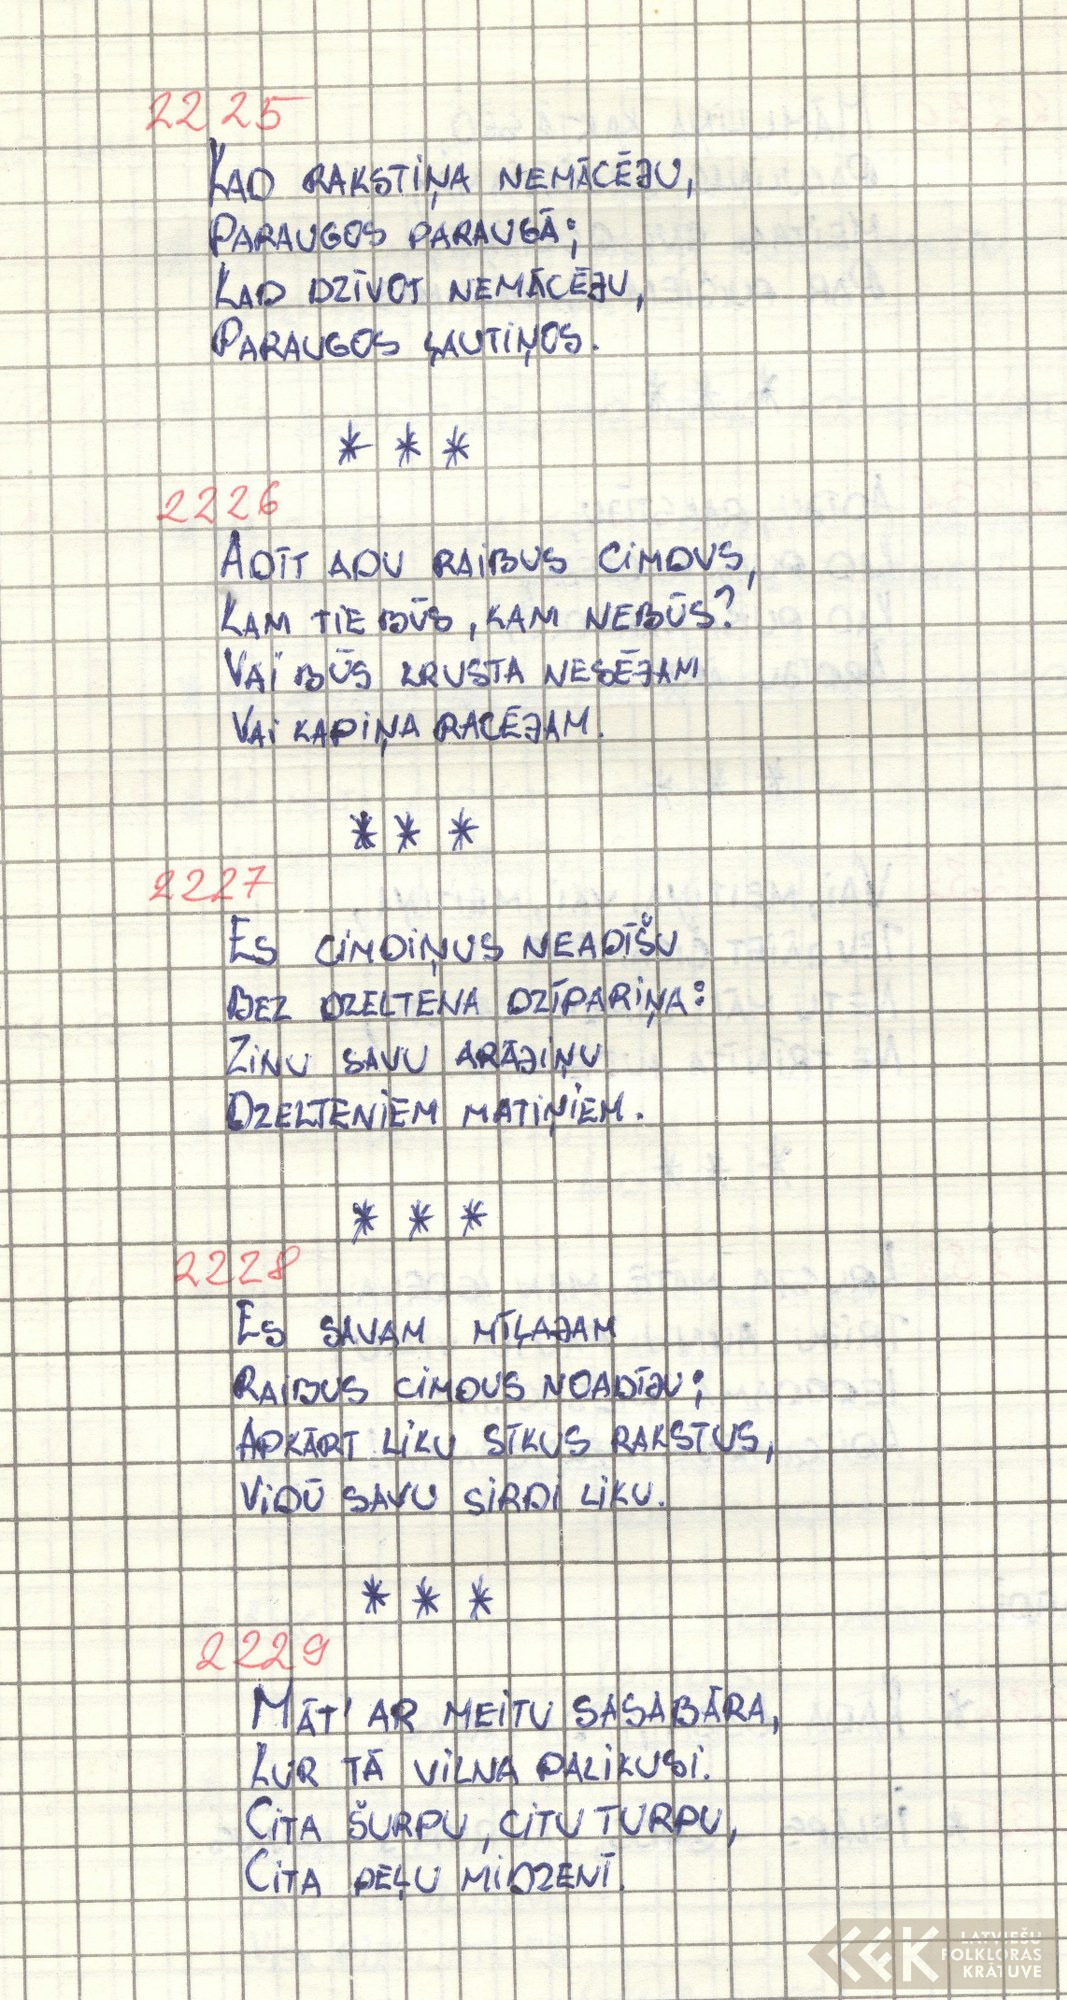 2225
KAD RAKSTIŅA NEMĀCĒJU,
PARAUGOS PARAUGĀ;
KAD DZĪVOT NEMĀCĒJU,
PARAUGOS ĻAUTIŅOS.
* * *
2226
ADĪT ADU RAIBUS CIMDUS,
KAM TIE BŪS, KAM NEBŪS?
VAI BŪS KRUSTA NESĒJAM
VAI KAPIŅA RACĒJAM.
* * *
2227
ES CIMDIŅUS NEADĪŠU
BEZ DZELTENA DZĪPARIŅA:
ZINU SAVU ARĀJIŅU
DZELTENIEM MATIŅIEM.
* * *
2228
ES SAVAM MĪĻAJAM
RAIBUS CIMDUS NOADĪJU;
APKĀRT LIKU SĪKUS RAKSTUS,
VIDŪ SAVU SIRDI LIKU.
* * *
2229
MĀT' AR MEITU SASABĀRA,
KUR TĀ VILNA PALIKUSI.
CITA ŠURPU, CITU TURPU,
CITA PEĻU MIDZENĪ.
LATVIEŠU
FOLKLORAS
KRĀTUVE